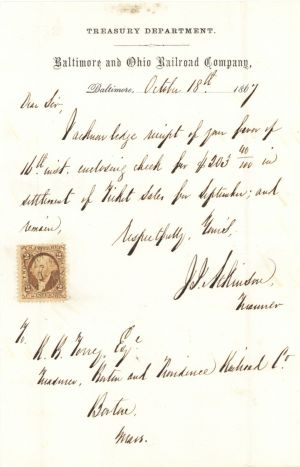 TREASURY DEPARTMENT.
Baltimore and Ohio Railroad Company,
Baltimore, October 18th 1867
Dear Sir,
I acknowledge receipt of your favor of
16th inst. enclosing check for $203 40/100 in
settlement of Ticket Sales for September; and
remain,
Respectfully, Yours,
J. I. Atkinson,
Treasurer
To
H. B. Torrey, Esq.
Treasurer, Boston and Providence Railroad Co
Boston
Mass.